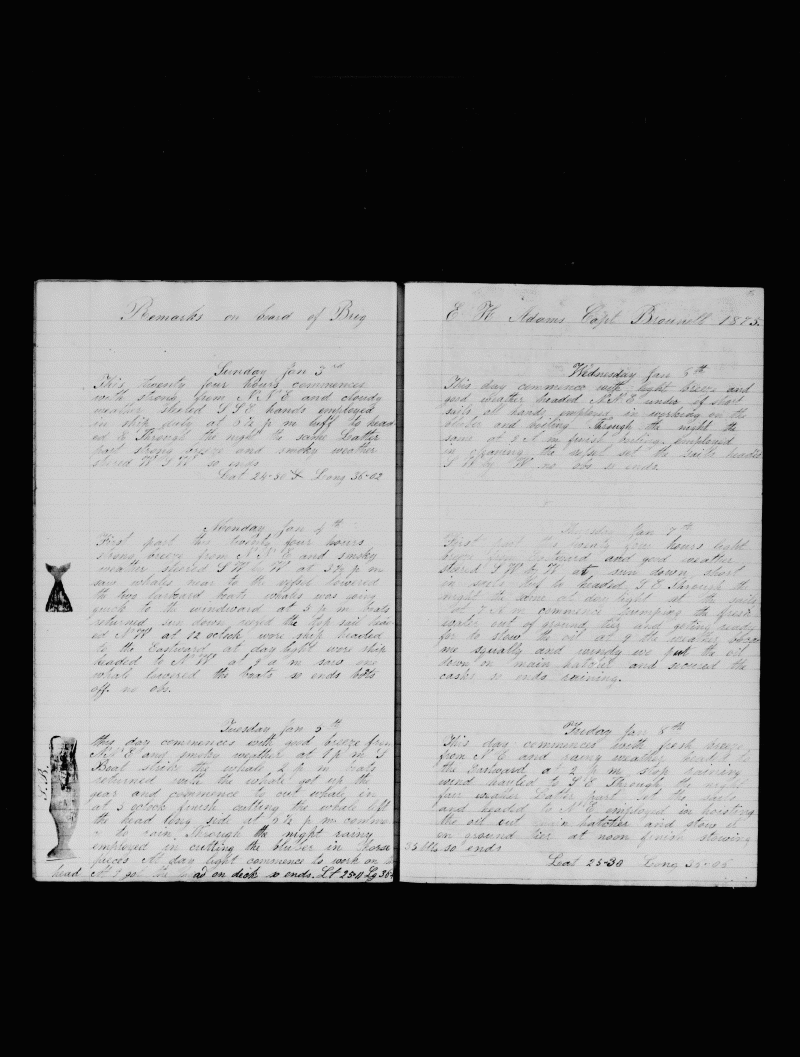 Remarks on board of Brig
Sunday Jan 3rd
This twenty four hours commences
with strong from N N E and cloudy
weather stered S S E hands employed
in ship duty at 6½ p m luft to head
ed E Through the night the same Latter
part strong breeze and smoky weather
stered W S W so ends
Lat 24-50 S Long 36-02
Monday Jan 4th
First part this twenty four hours
strong breeze from N N E and smoky
weather stered S W by W at 3½ p m
saw whales near to the vessel lowered
the two larboard boats whales was going
quick to the windward at 5 p m boats
returned sun down reefed the top sail head
ed N W at 12 oclock wore ship headed
to the Eastward at day light wore ship
headed to N W at 9 a m saw one
whale lowered the boats so ends boats
off. no obs.
Tuesday Jan 5th
this day commences with good breeze from
N N E and smoky weather at 1 p m S
Boat strick the whale 2 p m boats
returned with the whale got up the
gear and commence to cut whale in
at 5 oclock finish cutting the whale left
the head long side at 5½ p m commenc
e to rain. Through the night rainy
employed in cutting the bluber in Horse
pieces At day light commence to work on the
head At 9 got the head on deck so ends. Lt 25-11 Lg 36-
S. B.
E H Adams Capt Brownell 1875.
Wednesday Jan 6th
This day commence with light breeze and
good weather headed N N E under of short
sails all hands employed in working on the
bluber and boiling. Trough the night the
same at 8 A m finish boiling employed
in cleaning the vessel set the sails headed
S W by W no obs so ends.
Thursday Jan 7th
First part this twenty four hours light
breeze from Eastward and good weather
stered S W by W at sun down short
in sails luf to headed S E Through the
night the same at day light set the sails
at 7 A m commence pumping the fresh
water out of ground tier and geting ready
for to stow the oil at 9 the weather beca
me squally and raindy we put the oil
down on main hatches and secured the
casks so ends raining.
Friday Jan 8th
This day commences with fresh breeze
from N E and rainy weather headed to
the Eastward at 2 p m stop raining
wind hauled to S E Through the night
fair weather Latter part set the sails
and headed to N E employed in hoisting
the oil out main hatches and stow it
on ground tier at noon finish stowing
35 bbls so ends
Lat 25-30 Long 35-05